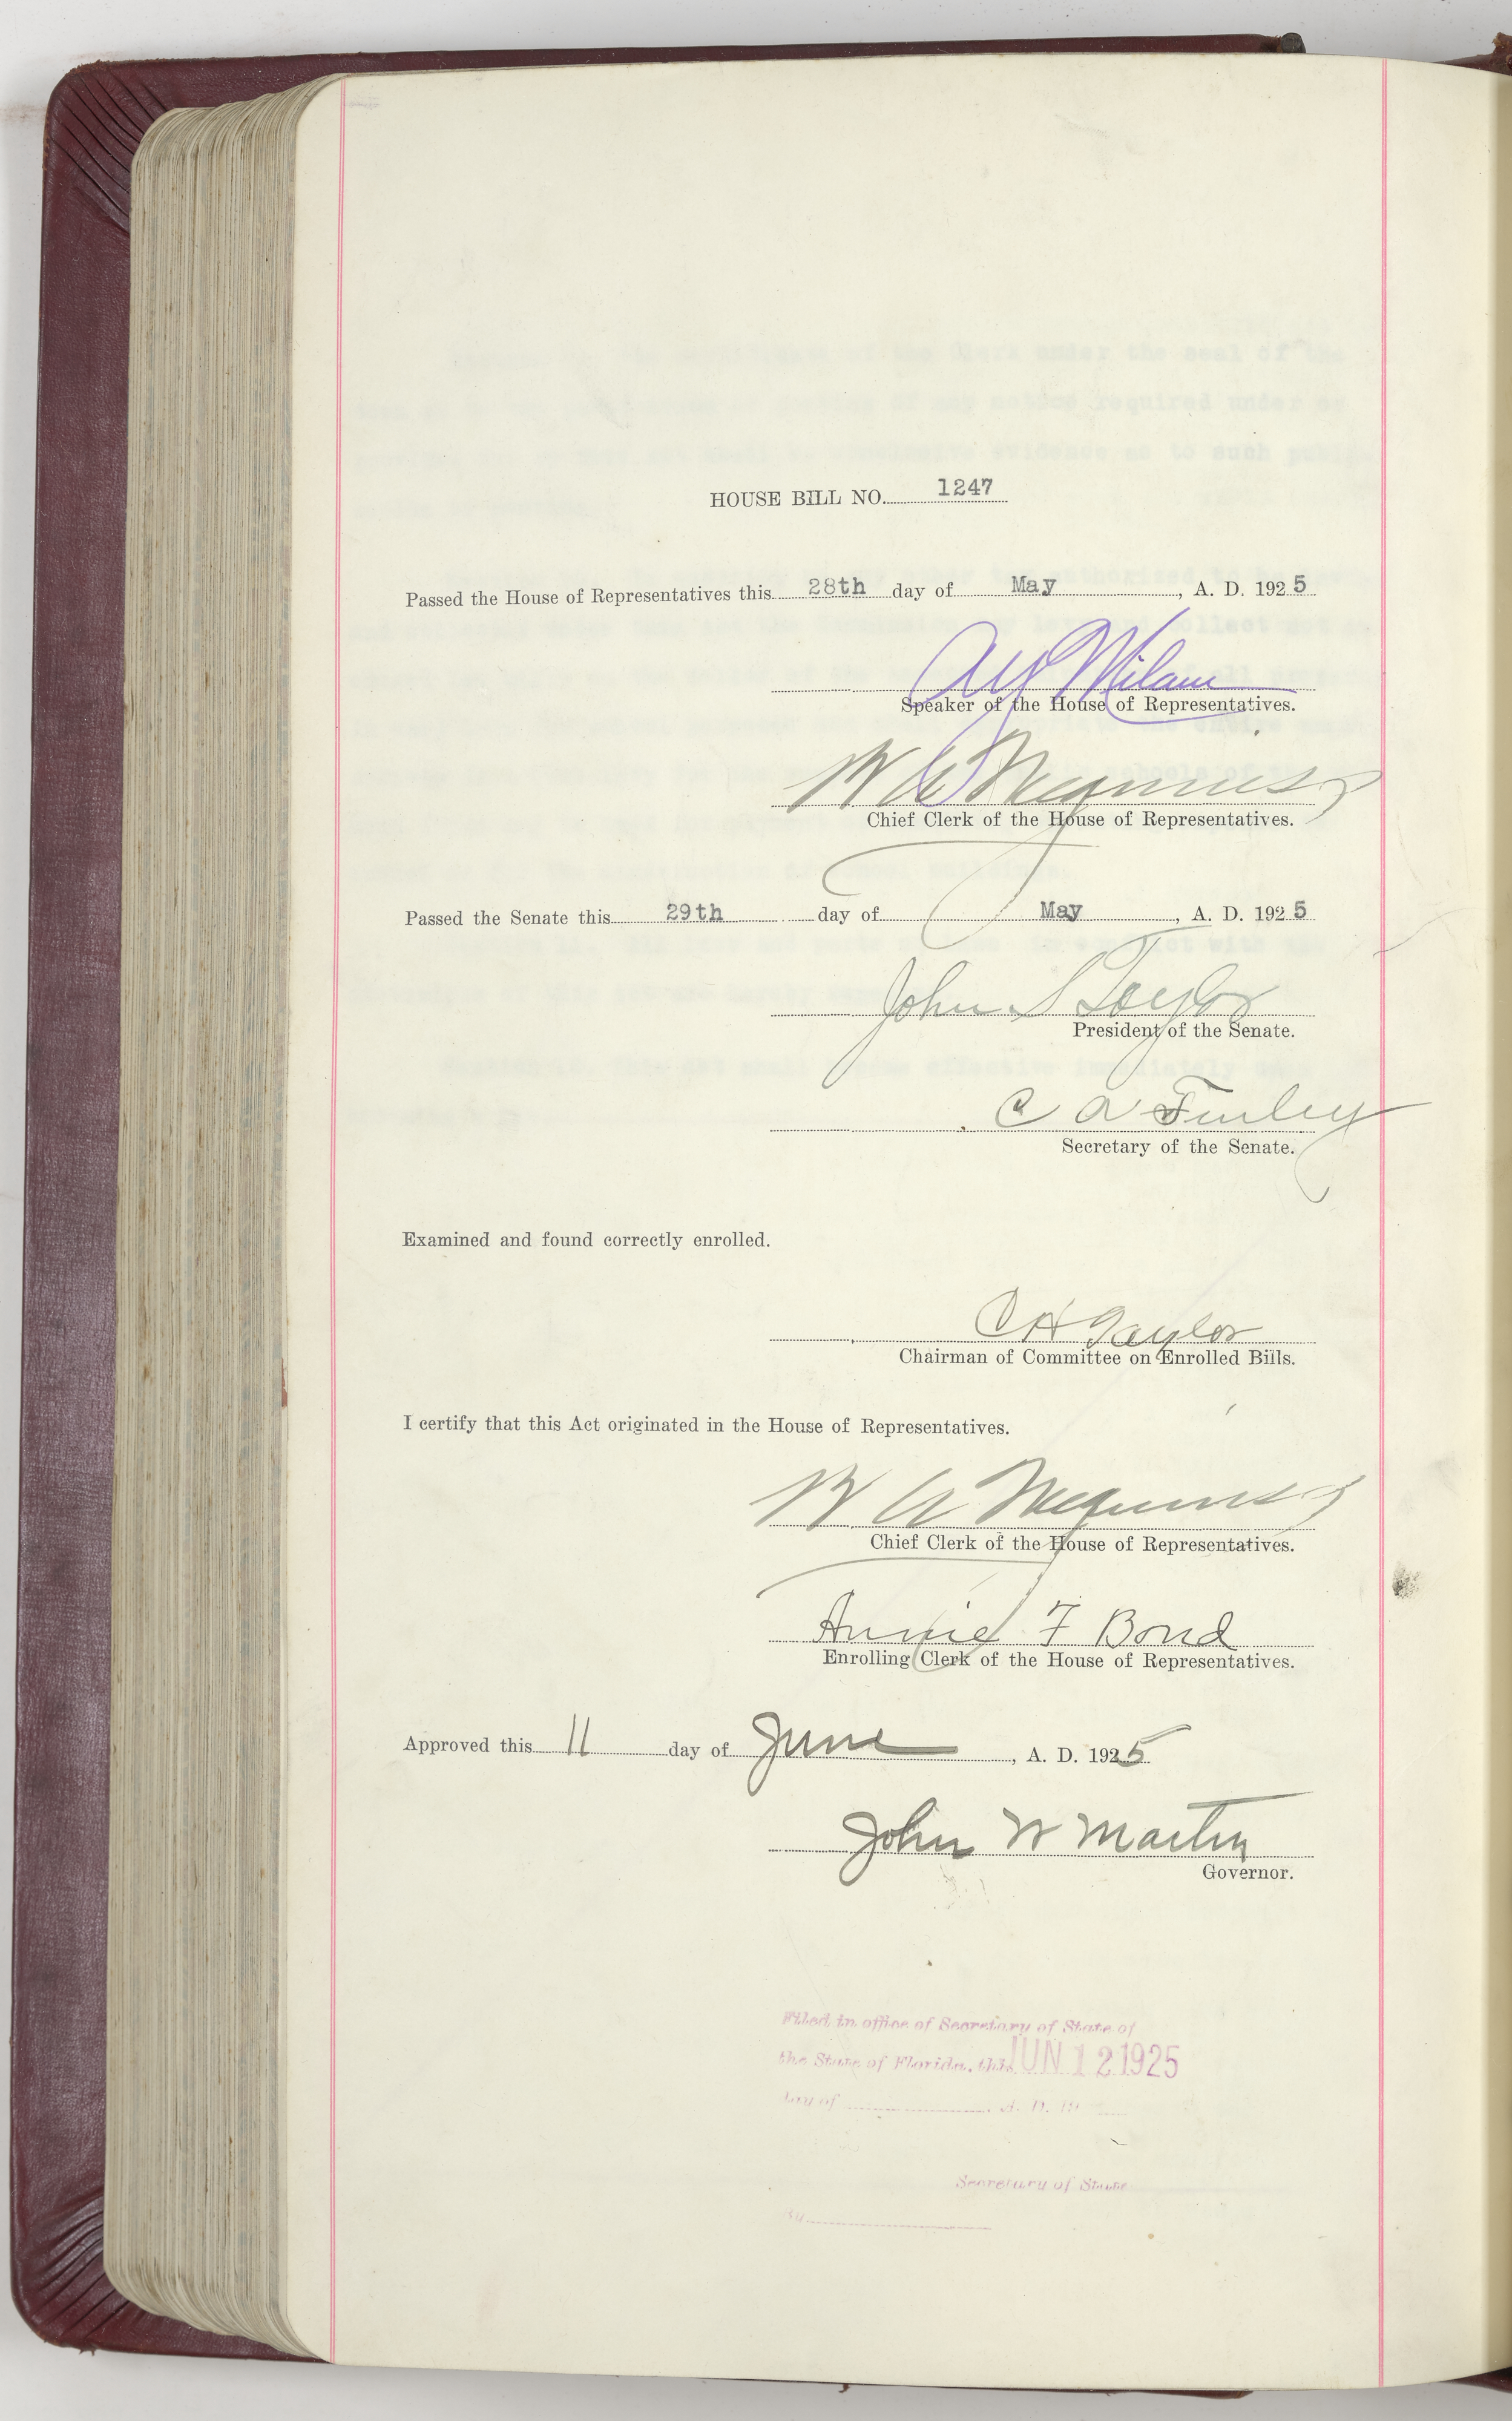 HOUSE BILL NO. 1247
Passed the House of Representatives this 28th day of May, A. D. 1925
A Y Milam
Speaker of the House of Representatives.
Chief Clerk of the House of Representatives.
Passed the Senate this 29th day of May, A. D. 1925
John S Taylor
President of the Senate.
C A Finley
Secretary of the Senate.
Examined and found correctly enrolled.
C H Taylor
Chairman of Committee on Enrolled Bills.
I certify that this Act originated in the House of Representatives.
Chief Clerk of the House of Representatives.
Annie F Bond
Enrolling Clerk of the House of Representatives.
Approved this 11 day of June, A. D. 1925
John W Martin
Governor.
Filed in office of Secretary of State of
the State of Florida, this JUN 12 1925
day of A. D. 19
Secretary of State
By